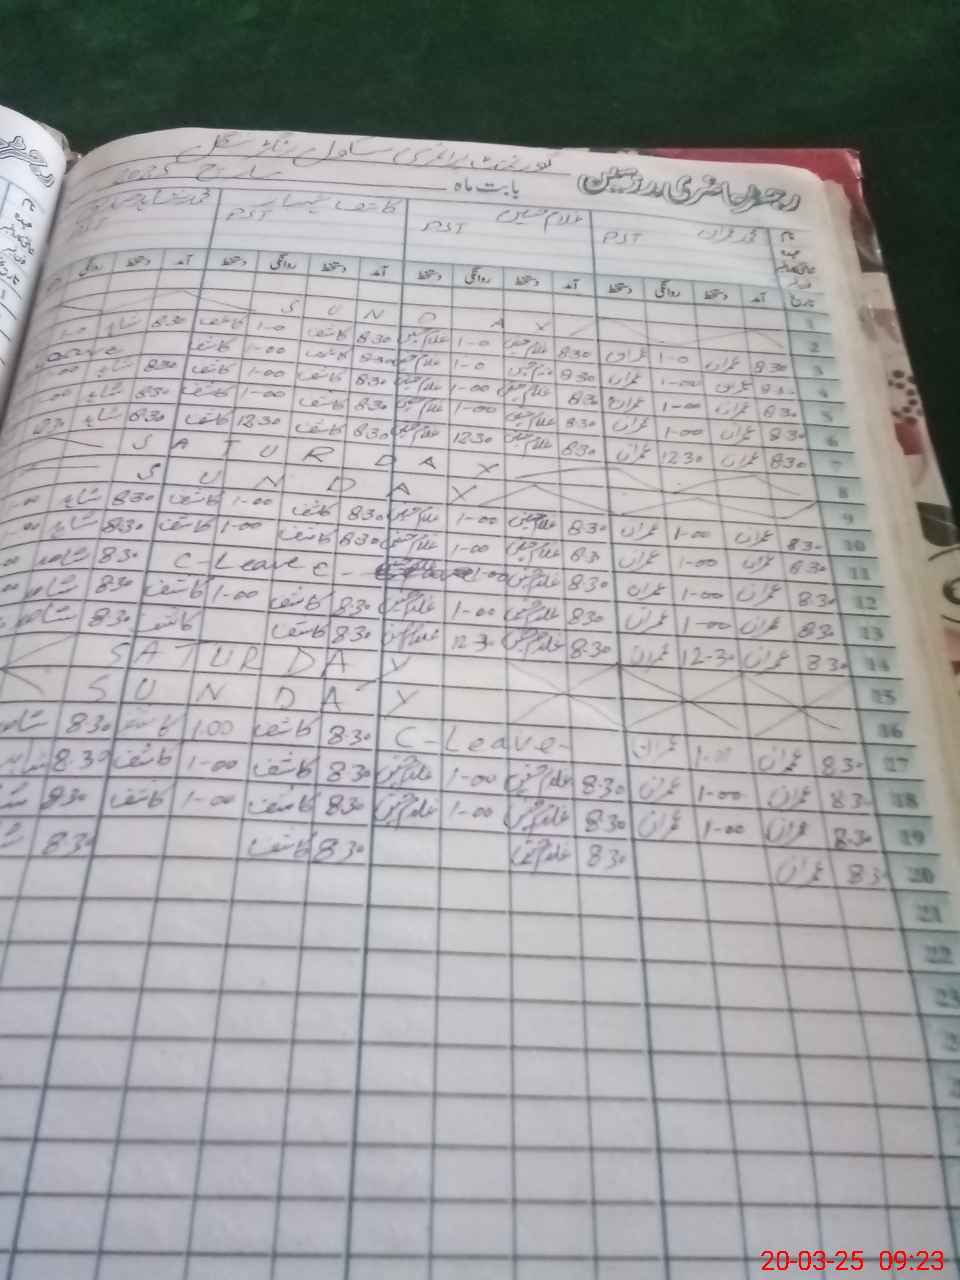 گورنمنٹ پرائمری سکول
رجسٹر حاضری مدرسین بابت ماہ مارچ 2025
نام محمد عمران غلام حسین کاشف
عہدہ PST PST PST PST
تاریخ آمد دستخط روانگی دستخط آمد دستخط روانگی دستخط آمد دستخط روانگی دستخط آمد دستخط روانگی
1
2 SUNDAY
3 8.30 عمران 1-0 عمران 8.30 غلام حسین 1-0 غلام حسین 8.30 کاشف 1-0 کاشف 8.30 شاہد 1-0
4 8.30 عمران 1-00 عمران 8.30 غلام حسین 1-0 غلام حسین 8.30 کاشف 1-00 کاشف
5 8.30 عمران 1-00 عمران 8.30 غلام حسین 1-00 غلام حسین 8.30 کاشف 1-00 کاشف 8.30 شاہد
6 8.30 عمران 1-00 عمران 8.30 غلام حسین 1-00 غلام حسین 8.30 کاشف 1-00 کاشف 8.30 شاہد
7 8.30 عمران 12.30 عمران 8.30 غلام حسین 12.30 غلام حسین 8.30 کاشف 12.30 کاشف 8.30 شاہد
8 SATURDAY
9 SUNDAY
10 8.30 عمران 1-00 عمران 8.30 غلام حسین 1-00 غلام حسین 8.30 کاشف 1-00 کاشف 8.30 شاہد
11 8.30 عمران 1-00 عمران 8.30 غلام حسین 1-00 غلام حسین 8.30 کاشف 1-00 کاشف 8.30 شاہد
12 8.30 عمران 1-00 عمران 8.30 غلام حسین 1-00 C-Leave 8.30 شاہد
13 8.30 عمران 1-00 عمران 8.30 غلام حسین 1-00 غلام حسین 8.30 کاشف 1-00 کاشف 8.30 شاہد
14 8.30 عمران 12-30 عمران 8.30 غلام حسین 12.30 غلام حسین 8.30 کاشف کاشف 8.30 شاہد
15 SATURDAY
16 SUNDAY
17 8.30 عمران 1-00 عمران C-Leave- 8.30 کاشف 1.00 کاشف 8.30 شاہد
18 8.30 عمران 1-00 عمران 8.30 غلام حسین 1-00 غلام حسین 8.30 کاشف 1-00 کاشف 8.30 شاہد
19 8.30 عمران 1-00 عمران 8.30 غلام حسین 1-00 غلام حسین 8.30 کاشف 1-00 کاشف 8.30
20 8.30 عمران 8.30 غلام حسین 8.30 کاشف 8.30
21
22
23
20-03-25 09:23